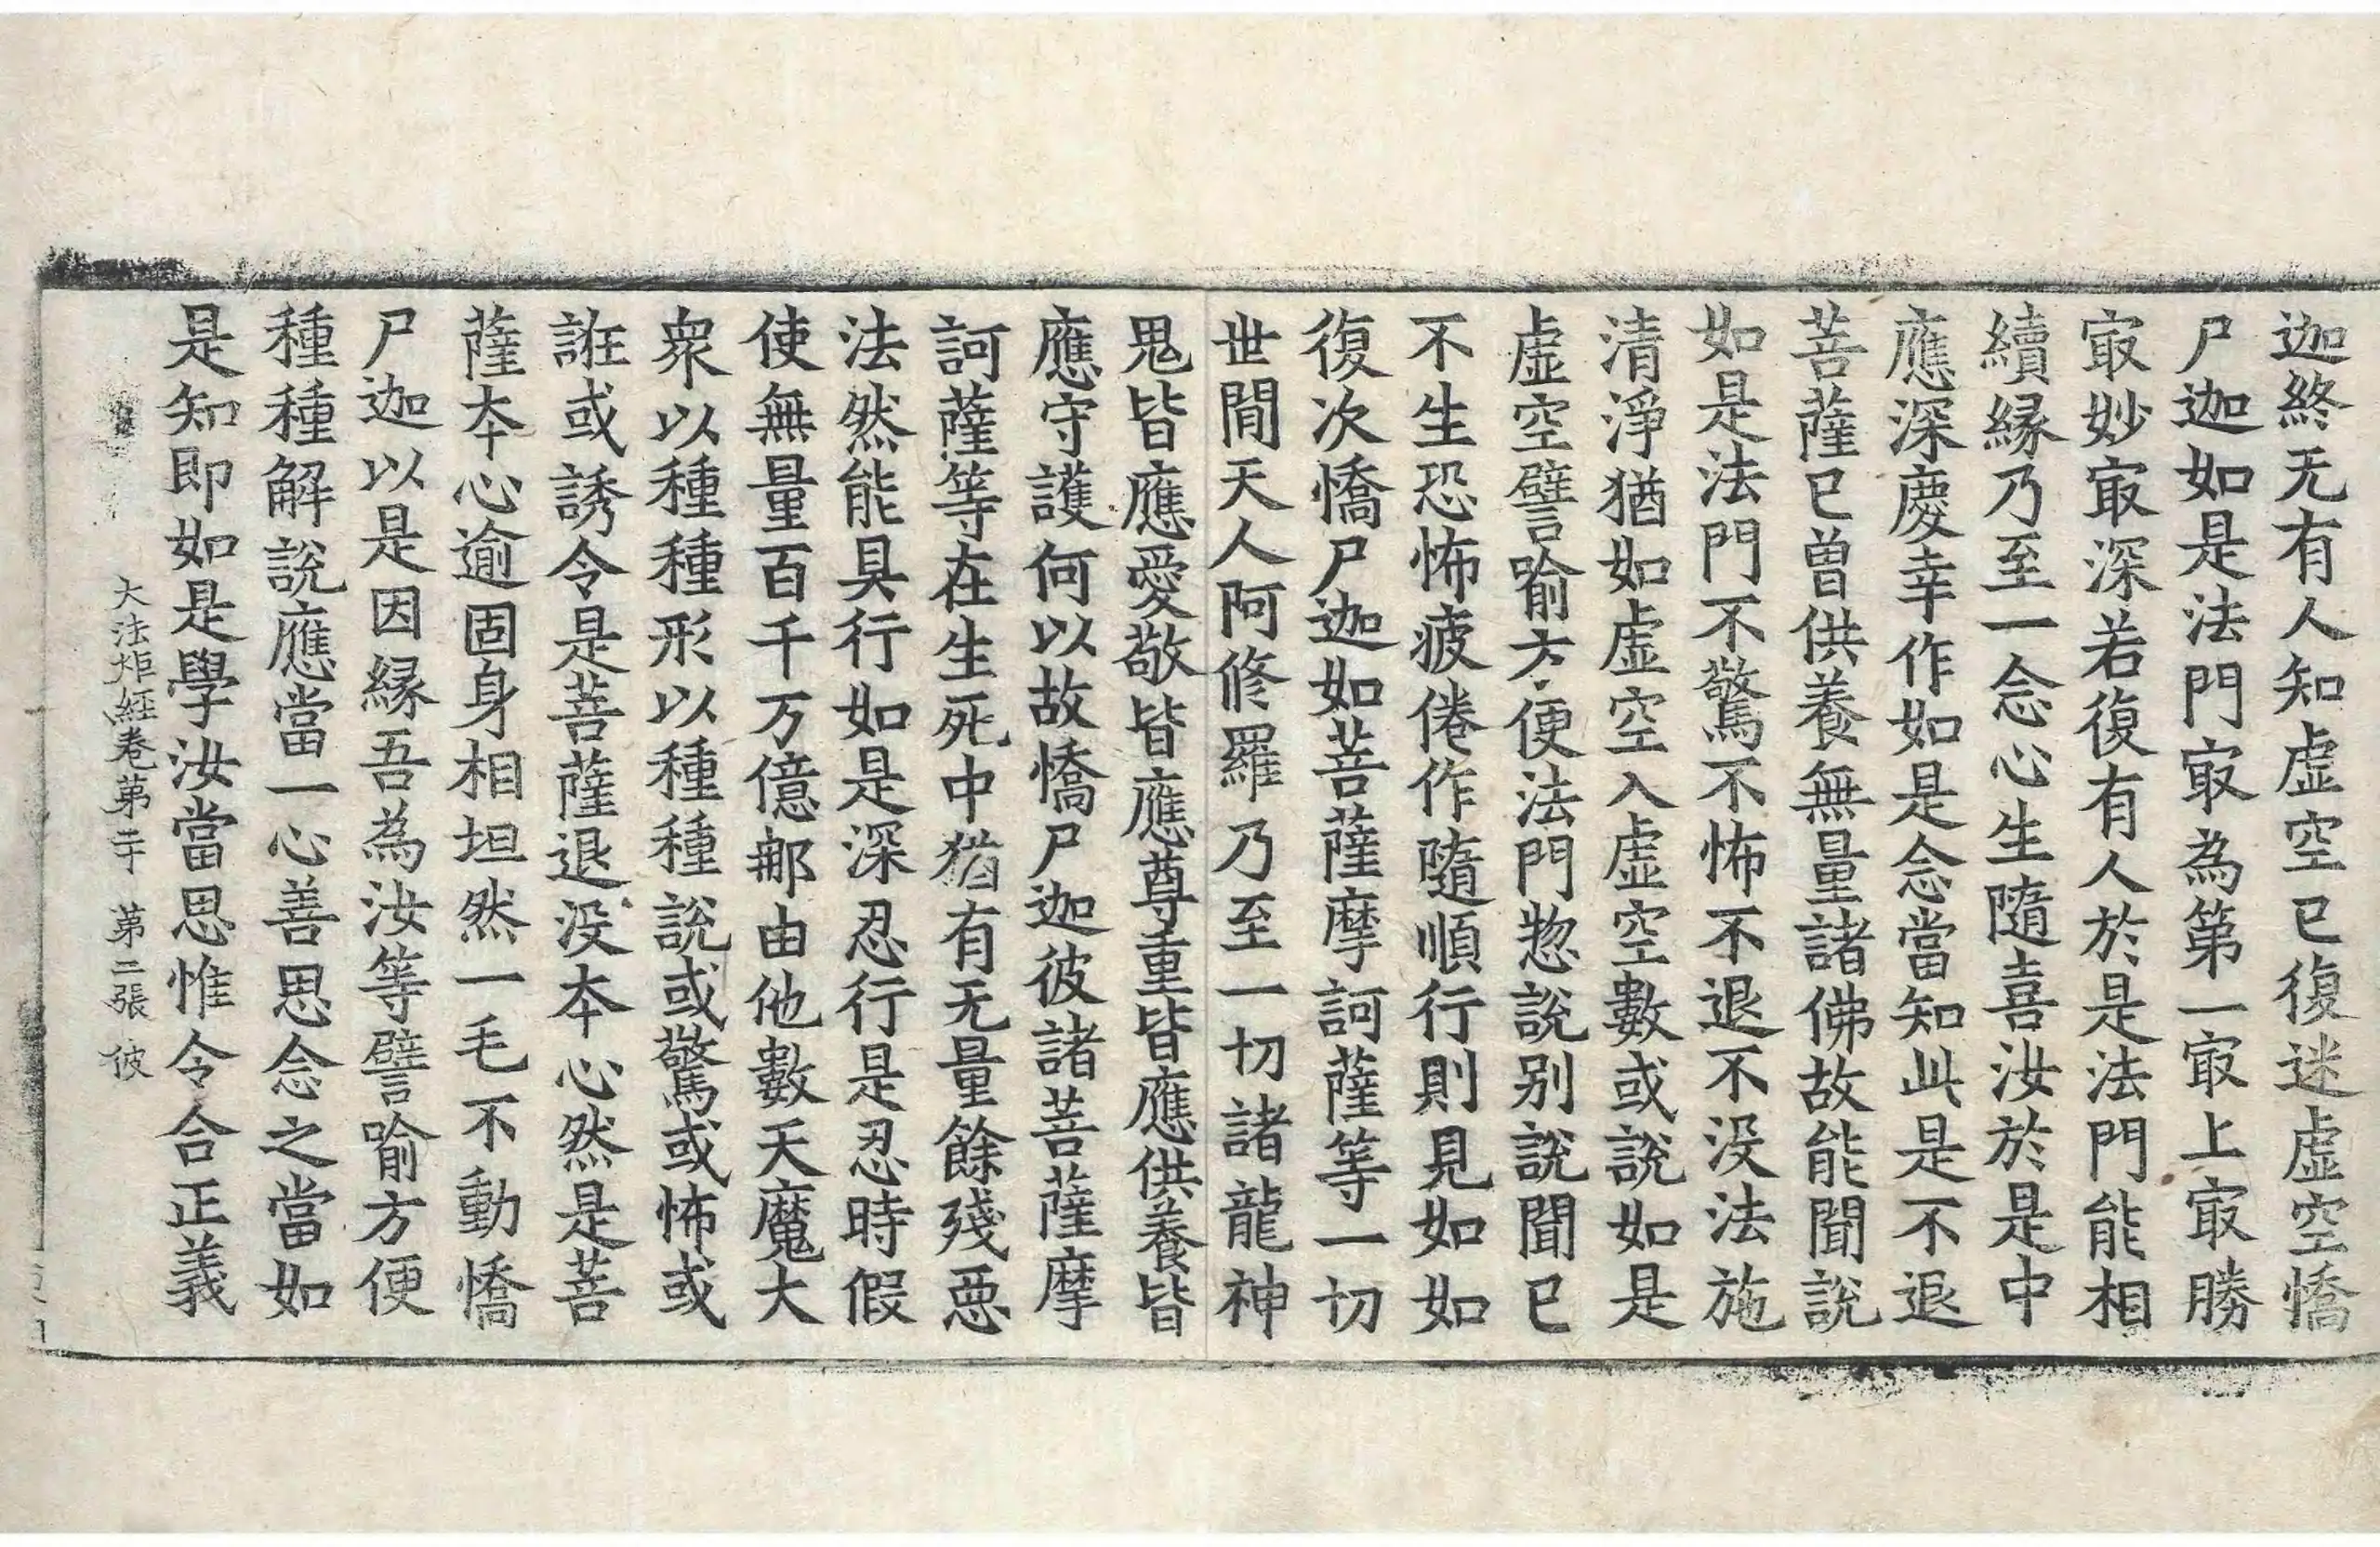 迦終无有人知虛空已復迷虛空憍
尸迦如是法門冣為第一冣上冣勝
冣妙冣深若復有人於是法門能相
續緣乃至一念心生隨喜汝於是中
應深慶幸作如是念當知此是不退
菩薩已曾供養無量諸佛故能聞說
如是法門不驚不怖不退不没法施
清淨猶如虛空入虛空數或說如是
虛空譬喻方便法門惣說別說聞已
不生恐怖疲倦作隨順行則見如如
復次憍尸迦如菩薩摩訶薩等一切
世間天人阿修羅乃至一切諸龍神
鬼皆應愛敬皆應尊重皆應供養皆
應守護何以故憍尸迦彼諸菩薩摩
訶薩等在生死中猶有无量餘殘惡
法然能具行如是深忍行是忍時假
使無量百千万億那由他數天魔大
衆以種種形以種種說或驚或怖或
誑或誘令是菩薩退没本心然是菩
薩本心逾固身相坦然一毛不動憍
尸迦以是因緣吾為汝等譬喻方便
種種解說應當一心善思念之當如
是知即如是學汝當思惟令合正義
大法炬經卷第二十 第二張 彼